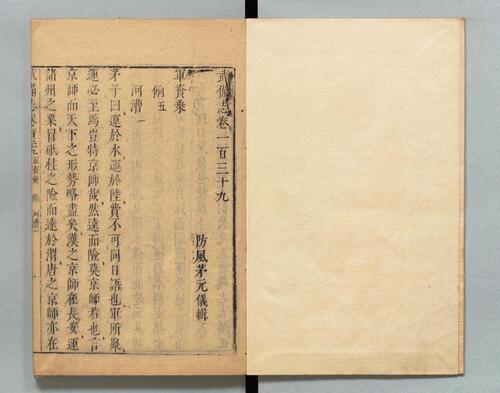 武備志卷一百三十九
防風茅元儀輯
軍資乘
餉五
河漕一
茅子曰運於水運於陸費不可同日語也軍所聚
運必至焉豈特京師哉然遠而險莫京師若也言
京師而天下之形勢略盡矣漢之京師在長安運
諸州之粟冒砥柱之險而達於渭唐之京師亦在
武備志卷一百三十九 軍資乘 餉 河漕一